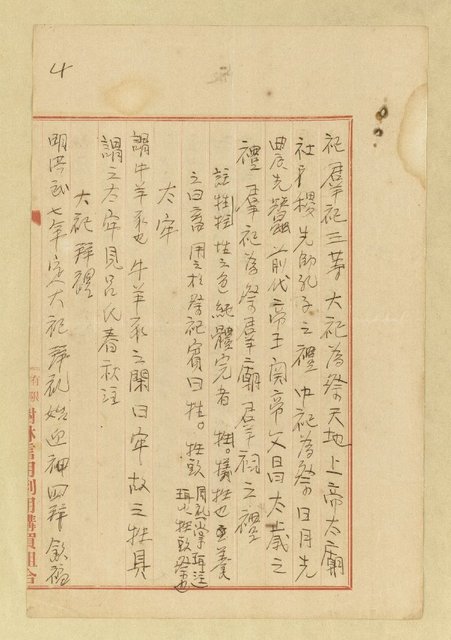 4
祀群祀三等大祀為祭天地上帝太廟
社稷先師孔子之禮中祀為祭日月先
農先蠶前代帝王関帝文昌太歲之
禮羣祀為祭羣廟羣祠之禮
註牲牷牲之色純體完者牲。犧牲也養
之曰畜用之於祭祀賓曰牲。牲
太牢
謂牛羊豕也牛羊豕之閑曰牢故三牲具
謂之太牢見呂氏春秋注
大祀拜禮
明洪武七年定大祀拜礼始迎神四拜飲福
有限
樹林信用利用購買組合